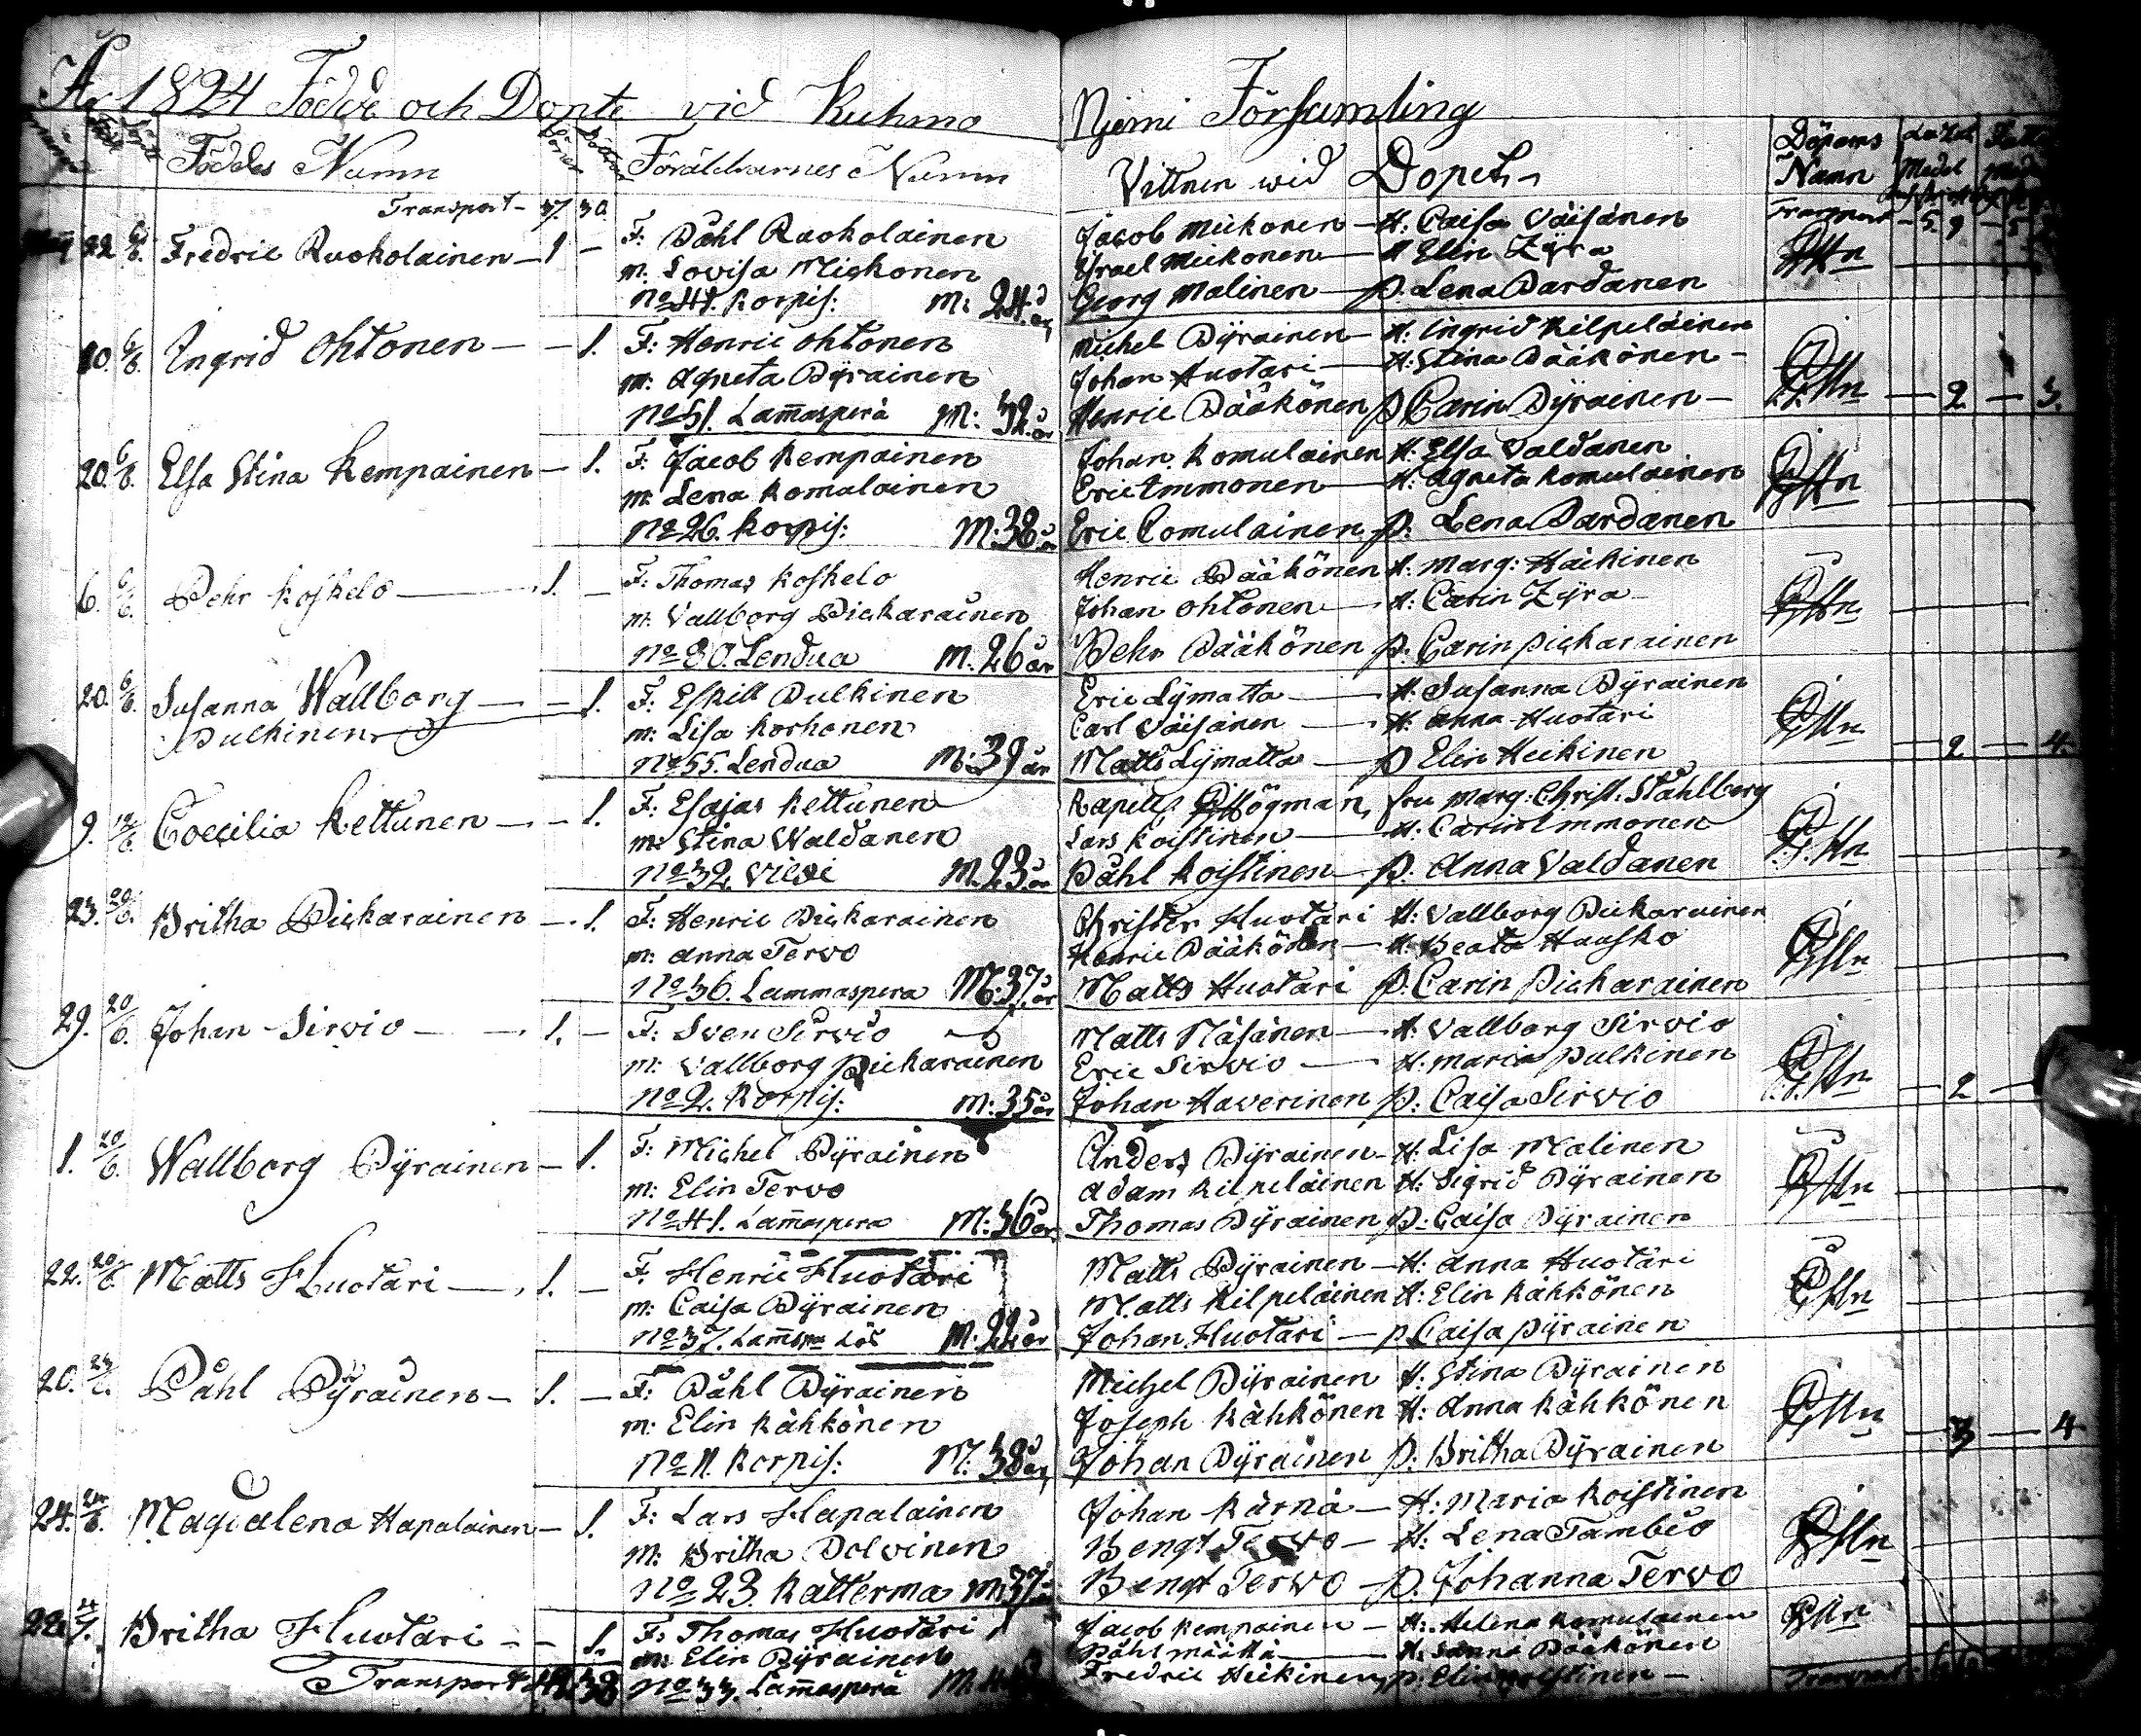 År 1824 Födde och Dopte vid Kuhmo Njemi Församling
Födde Födt Födeles Namn Söner Döttrar Föräldrarnes Namn Vittnen wid Dopet Döpares Namn
Transport - 37. 30. Transport - 5. 9 - 5
22. 6/6. Fredric Ruokolainen - 1 - F: Påhl Ruokolainen Jacob Mickonen - H: Caisa Väisänen
m: Lovisa Mickonen Israel Mickonen - H Elin Zÿra
No 41. Korpis: M: 24. år Georg Malinen - p. Lena Pardanen
20. 6/6. Ingrid Ohtonen - - 1. F: Henric Ohtonen Michel Pÿrainen - H: Ingrid Kilpeläinen
m: Agneta Pÿrainen Johan Huotari - H: Stina Pääkönen -
No 51. Lam̄asperä M: 32. år Henric Pääkönen p Carin Pÿrainen - - 2 - 3.
20. 6/6. Elsa Stina Kempainen - 1. F: Jacob Kempainen Johan Komulainen H: Elsa Valdanen
m: Lena Komulainen Eric Immonen - H: Agneta Komulainen
No 26. Korpis: M: 38. år Eric Comulainen p: Lena Pardanen
6. 6/6. Pehr Koskelo - 1. - F: Thomas Koskelo Henric Pääkönen H: Marg: Häikinen
m: Vallborg Pickarainen Johan Ohtonen - H: Carin Zÿra
No 80. Lendua M. 26 år Pehr Pääkönen p. Carin Pickarainen
20. 6/6. Susanna Wallborg - - 1. F: Eskill Pulkinen Eric Lÿmatta - H: Susanna Pÿrainen
Pulkinen m: Lisa Korhonen Carl Väisänen - H: Anna Huotari
No 55. Lendua M: 39 år Matts Lÿmatta - p Elin Heikinen - 2 - 4.
9. 12/6. Coecilia Kettunen - - 1. F: Esajas Kettunen Kapell: Högman, fru Marg: Christ: Ståhlberg
m: Stina Waldanen Lars Koistinen - H: Carin Immonen
No 32. Viexi M. 23. år Påhl Koistinen - p. Anna Valdanen
23. 20/6. Britha Pickarainen - 1. F: Henric Pickarainen Christer Huotari H: Vallborg Pickarainen
m: Anna Tervo Henric Pääkönen - H: Beata Hausko
No 36. Lammaspera M: 37. år Matts Huotari p. Carin Pickarainen
29. 20/6. Johan Sirvio - 1. - F: Sven Sirvio Matts Näsänen - H: Vallborg Sirvio
m: Vallborg Pickarainen Eric Sirvio - H: Maria Pulkinen
No 2. Korpis: M: 35 år Johan Haverinen p: Caisa Sirvio - 2 -
1. 20/6. Wallborg Pÿrainen - 1. F: Michel Pÿrainen Anders Pÿrainen - H: Lisa Malinen
m: Elin Tervo Adam Kilpeläinen H: Sigrid Pÿrainen
No 41. Lam̄aspera M: 36 år Thomas Pÿrainen p: Caisa Pÿrainen
22. 20/6. Matts Huotari - 1. - F. Henric Huotari Matts Pÿrainen - H: Anna Huotari
m: Caisa Pÿrainen Matts Kilpeläinen H: Elin Kähkönen
No 37. Lam̄spa Lös M. 22 år Johan Huotari - p Caisa Pÿrainen
20. Påhl Pÿrainen - 1. - F: Påhl Pÿrainen Michel Pÿrainen H: Stina Pÿrainen
m: Elin Kähkönen Joseph Kähkönen H: Anna Kähkönen
No 11. Korpis: M: 38 år Johan Pÿrainen p: Britha Pÿrainen - 3 - 4
24. Magdalena Hapalainen - 1. F: Lars Hapalainen Johan Kärnä - H: Maria Koistinen
m: Britha Polvinen Bengt Tervo - H: Lena Tambio
No 23. Katterma M: 37. Bengt Tervo - p. Johanna Tervo
22. 4/7. Britha Huotari - - 1. F: Thomas Huotari Jacob Kempainen - H: Helena Komulainen
m: Elin Pÿrainen Påhl Määttä - H: Sanna Pääkönen
Transport 42. 38 No 33. Lam̄asperä Fredric Heikinen p: Elin Kristinen - Transport